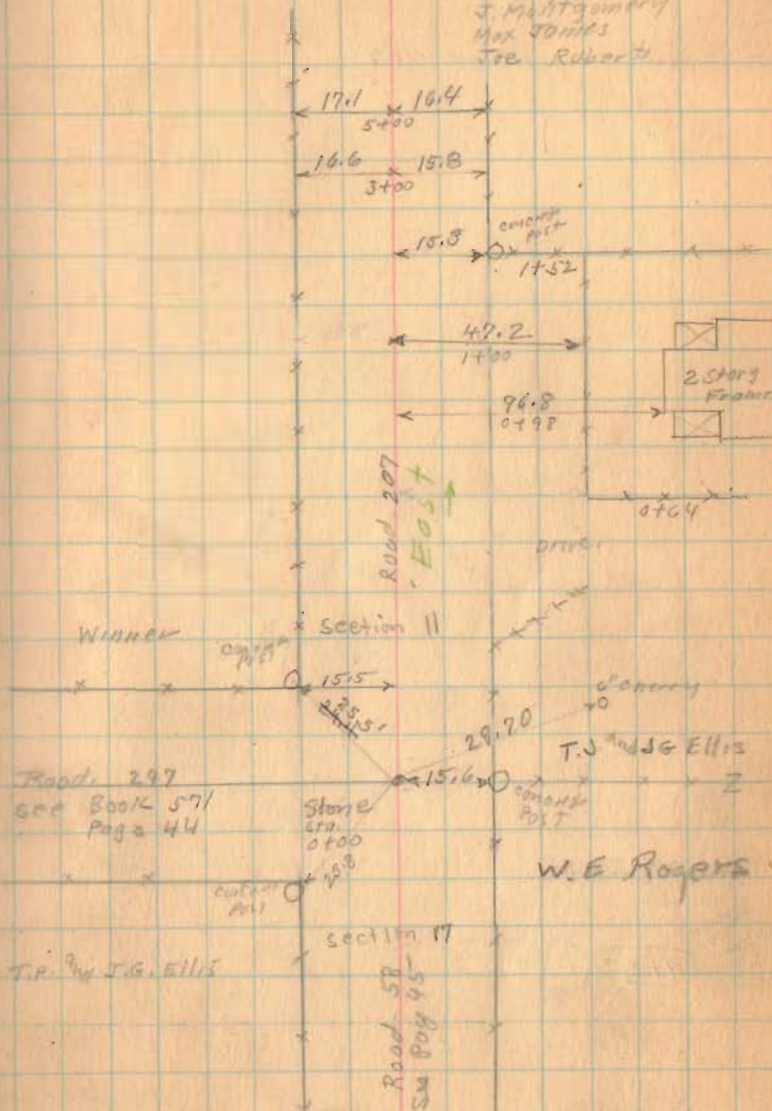 J. Montgomery
Max James
Joe Roberts
17.1 16.4
5+00
16.6 15.8
3+00
15.8 concrete
Post
1+52
47.2
1+00
96.8
0+98
2 Story
Frame
0+64
Road 207
East
Drive
Winner
section 11
Post
15.5
6" Cherry
28.20
T.J and J G Ellis
Road. 297
see Book 57/
Page 44
15.6
Stone
sta.
0+00
concrete
Post
Z
25.8
W.E Rogers
Post
section 17
T.P. and J.G. Ellis
Road 58
See Pag 45